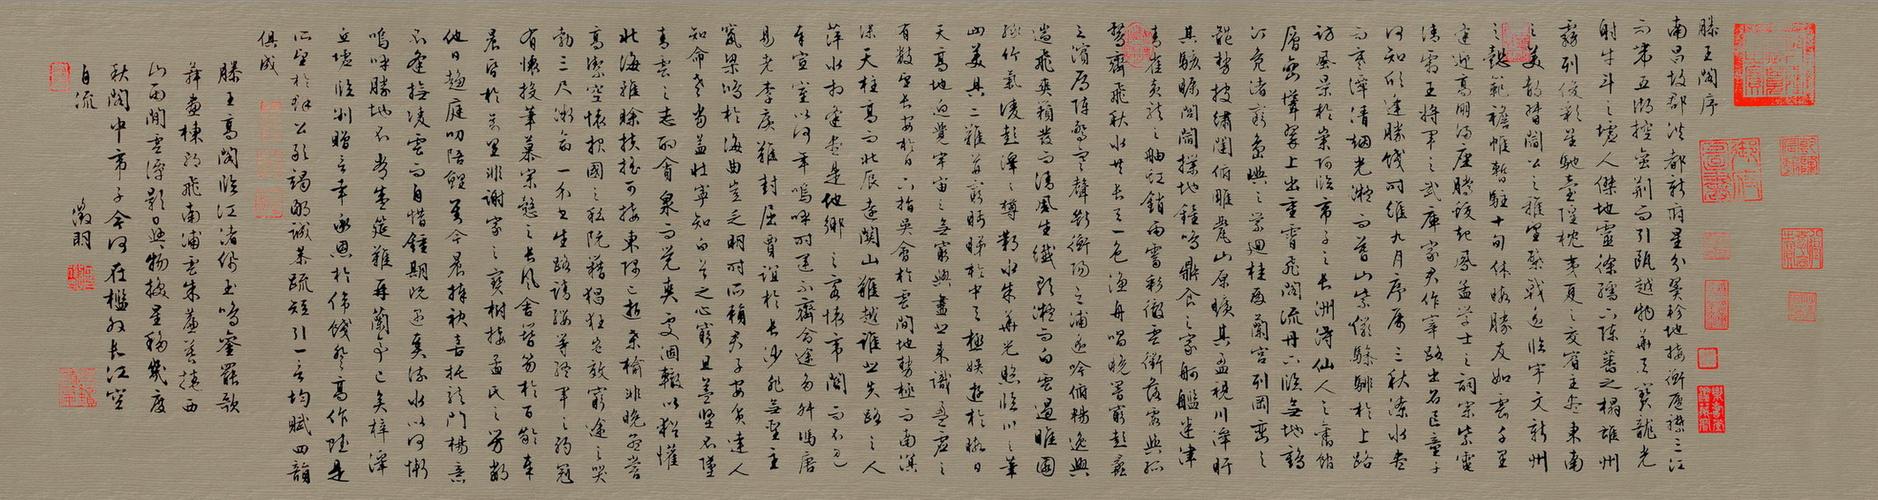 滕王閣序
南昌故郡洪都新府星分翼軫地接衡廬襟三江
而帶五湖控蠻荊而引甌越物華天寶龍光
射牛斗之墟人傑地靈徐孺下陳蕃之榻雄州
霧列俊彩星馳臺隍枕夷夏之交賓主盡東南
之美都督閻公之雅望棨戟遙臨宇文新州
之懿範襜帷暫駐十旬休暇勝友如雲千里
逢迎高朋滿座騰蛟起鳳孟學士之詞宗紫電
清霜王將軍之武庫家君作宰路出名區童子
何知躬逢勝餞時維九月序屬三秋潦水盡
而寒潭清煙光凝而暮山紫儼驂騑於上路
訪風景於崇阿臨帝子之長洲得仙人之舊館
層巒聳翠上出重霄飛閣流丹下臨無地鶴
汀鳧渚窮島嶼之縈迴桂殿蘭宮列岡巒之
體勢披繡闥俯雕甍山原曠其盈視川澤盱
其駭矚閭閻撲地鐘鳴鼎食之家舸艦迷津
青雀黃龍之舳虹銷雨霽彩徹雲衢落霞與孤
鶩齊飛秋水共長天一色漁舟唱晚響窮彭蠡
之濱雁陣驚寒聲斷衡陽之浦遙吟俯暢逸興
遄飛爽籟發而清風生纖歌凝而白雲遏睢園
綠竹氣凌彭澤之樽鄴水朱華光照臨川之筆
四美具二難并窮睇眄於中天極娛遊於暇日
天高地迥覺宇宙之無窮興盡悲來識盈虛之
有數望長安於日下指吳會於雲間地勢極而南溟
深天柱高而北辰遠關山難越誰悲失路之人
萍水相逢盡是他鄉之客懷帝閽而不見
奉宣室以何年嗚呼時運不齊命途多舛馮唐
易老李廣難封屈賈誼於長沙非無聖主
竄梁鴻於海曲豈乏明時所賴君子安貧達人
知命老當益壯寧知白首之心窮且益堅不墜
青雲之志酌貪泉而覺爽處涸轍以猶懽
北海雖賒扶搖可接東隅已逝桑榆非晚孟嘗
高潔空懷報國之私阮籍猖狂豈效窮途之哭
勃三尺微命一介書生路請纓等終軍之弱冠
有懷投筆慕宗慤之長風舍簪笏於百齡奉
晨昏於萬里非謝家之寶樹接孟氏之芳鄰
他日趨庭叨陪鯉對今晨捧袂喜托龍門楊意
不逢撫凌雲而自惜鍾期既遇奏流水以何慚
嗚呼勝地不常盛筵難再蘭亭已矣梓澤
丘墟臨別贈言幸承恩於偉餞登高作賦是
所望於群公敢竭鄙誠恭疏短引一言均賦四韻
俱成
滕王高閣臨江渚佩玉鳴鑾罷歌
舞畫棟朝飛南浦雲朱簾暮捲西
山雨閒雲潭影日悠悠物換星移幾度
秋閣中帝子今何在檻外長江空
自流
徵明